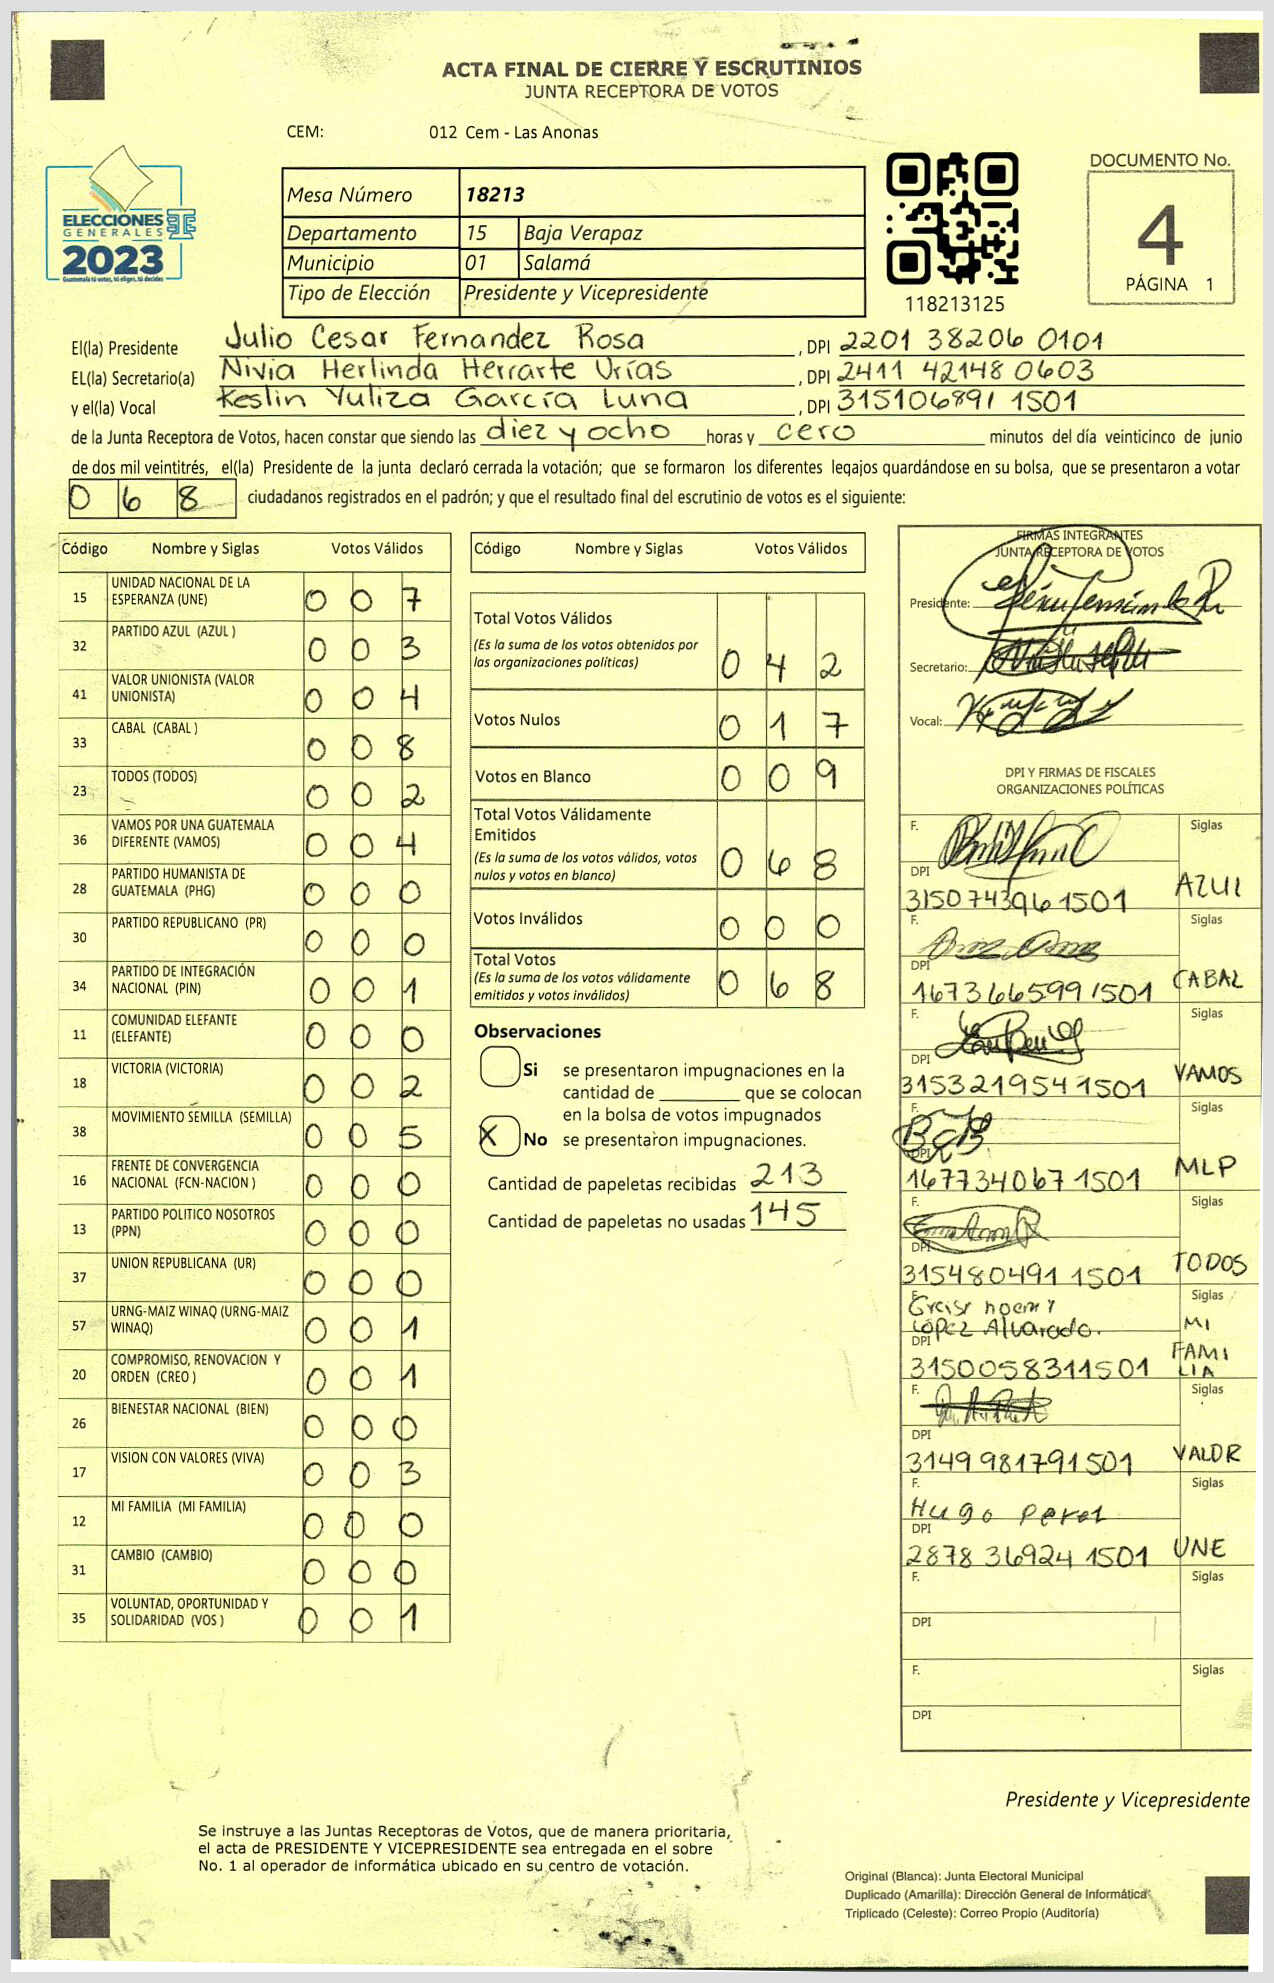 ACTA FINAL DE CIERRE Y ESCRUTINIOS
JUNTA RECEPTORA DE VOTOS
CEM: 012 Cem - Las Anonas
ELECCIONES
GENERALES
2023
Guatemala tú votas, tú eliges, tú decides
Mesa Número 18213
Departamento 15 Baja Verapaz
Municipio 01 Salamá
Tipo de Elección Presidente y Vicepresidente
118213125
DOCUMENTO No.
4
PÁGINA 1
El(la) Presidente Julio Cesar Fernandez Rosa , DPI 2201 38206 0101
EL(la) Secretario(a) Nivia Herlinda Herrarte Urías , DPI 2411 42148 0603
y el(la) Vocal Keslin Yuliza García Luna , DPI 315106891 1501
de la Junta Receptora de Votos, hacen constar que siendo las diez y ocho horas y cero minutos del día veinticinco de junio
de dos mil veintitrés, el(la) Presidente de la junta declaró cerrada la votación; que se formaron los diferentes legajos guardándose en su bolsa, que se presentaron a votar
0 6 8 ciudadanos registrados en el padrón; y que el resultado final del escrutinio de votos es el siguiente:
Código Nombre y Siglas Votos Válidos
15 UNIDAD NACIONAL DE LA ESPERANZA (UNE) 0 0 7
32 PARTIDO AZUL (AZUL ) 0 0 3
41 VALOR UNIONISTA (VALOR UNIONISTA) 0 0 4
33 CABAL (CABAL ) 0 0 8
23 TODOS (TODOS) 0 0 2
36 VAMOS POR UNA GUATEMALA DIFERENTE (VAMOS) 0 0 4
28 PARTIDO HUMANISTA DE GUATEMALA (PHG) 0 0 0
30 PARTIDO REPUBLICANO (PR) 0 0 0
34 PARTIDO DE INTEGRACIÓN NACIONAL (PIN) 0 0 1
11 COMUNIDAD ELEFANTE (ELEFANTE) 0 0 0
18 VICTORIA (VICTORIA) 0 0 2
38 MOVIMIENTO SEMILLA (SEMILLA) 0 0 5
16 FRENTE DE CONVERGENCIA NACIONAL (FCN-NACION ) 0 0 0
13 PARTIDO POLITICO NOSOTROS (PPN) 0 0 0
37 UNION REPUBLICANA (UR) 0 0 0
57 URNG-MAIZ WINAQ (URNG-MAIZ WINAQ) 0 0 1
20 COMPROMISO, RENOVACION Y ORDEN (CREO ) 0 0 1
26 BIENESTAR NACIONAL (BIEN) 0 0 0
17 VISION CON VALORES (VIVA) 0 0 3
12 MI FAMILIA (MI FAMILIA) 0 0 0
31 CAMBIO (CAMBIO) 0 0 0
35 VOLUNTAD, OPORTUNIDAD Y SOLIDARIDAD (VOS ) 0 0 1
Código Nombre y Siglas Votos Válidos
Total Votos Válidos
(Es la suma de los votos obtenidos por
las organizaciones políticas) 0 4 2
Votos Nulos 0 1 7
Votos en Blanco 0 0 9
Total Votos Válidamente
Emitidos
(Es la suma de los votos válidos, votos
nulos y votos en blanco) 0 6 8
Votos Inválidos 0 0 0
Total Votos
(Es la suma de los votos válidamente
emitidos y votos inválidos) 0 6 8
Observaciones
Si se presentaron impugnaciones en la
cantidad de ________ que se colocan
en la bolsa de votos impugnados
X No se presentaron impugnaciones.
Cantidad de papeletas recibidas 213
Cantidad de papeletas no usadas 145
FIRMAS INTEGRANTES
JUNTA RECEPTORA DE VOTOS
Presidente:
Secretario:
Vocal:
DPI Y FIRMAS DE FISCALES
ORGANIZACIONES POLÍTICAS
F. Siglas
DPI
3150743961501 AZUL
F. Siglas
DPI
1673666599 1501 CABAL
F. Siglas
DPI
315321954 1501 VAMOS
F. Siglas
DPI
167734067 1501 MLP
F. Siglas
DPI
315480491 1501 TODOS
F. Siglas
López Alvarado.
DPI
3150058311501 MI FAMILIA
F. Siglas
DPI
3149981791501 VALOR
F. Siglas
Hugo Perez
DPI
2878 36924 1501 UNE
F. Siglas
DPI
F. Siglas
DPI
Presidente y Vicepresidente
Se instruye a las Juntas Receptoras de Votos, que de manera prioritaria,
el acta de PRESIDENTE Y VICEPRESIDENTE sea entregada en el sobre
No. 1 al operador de informática ubicado en su centro de votación.
Original (Blanca): Junta Electoral Municipal
Duplicado (Amarilla): Dirección General de Informática
Triplicado (Celeste): Correo Propio (Auditoría)